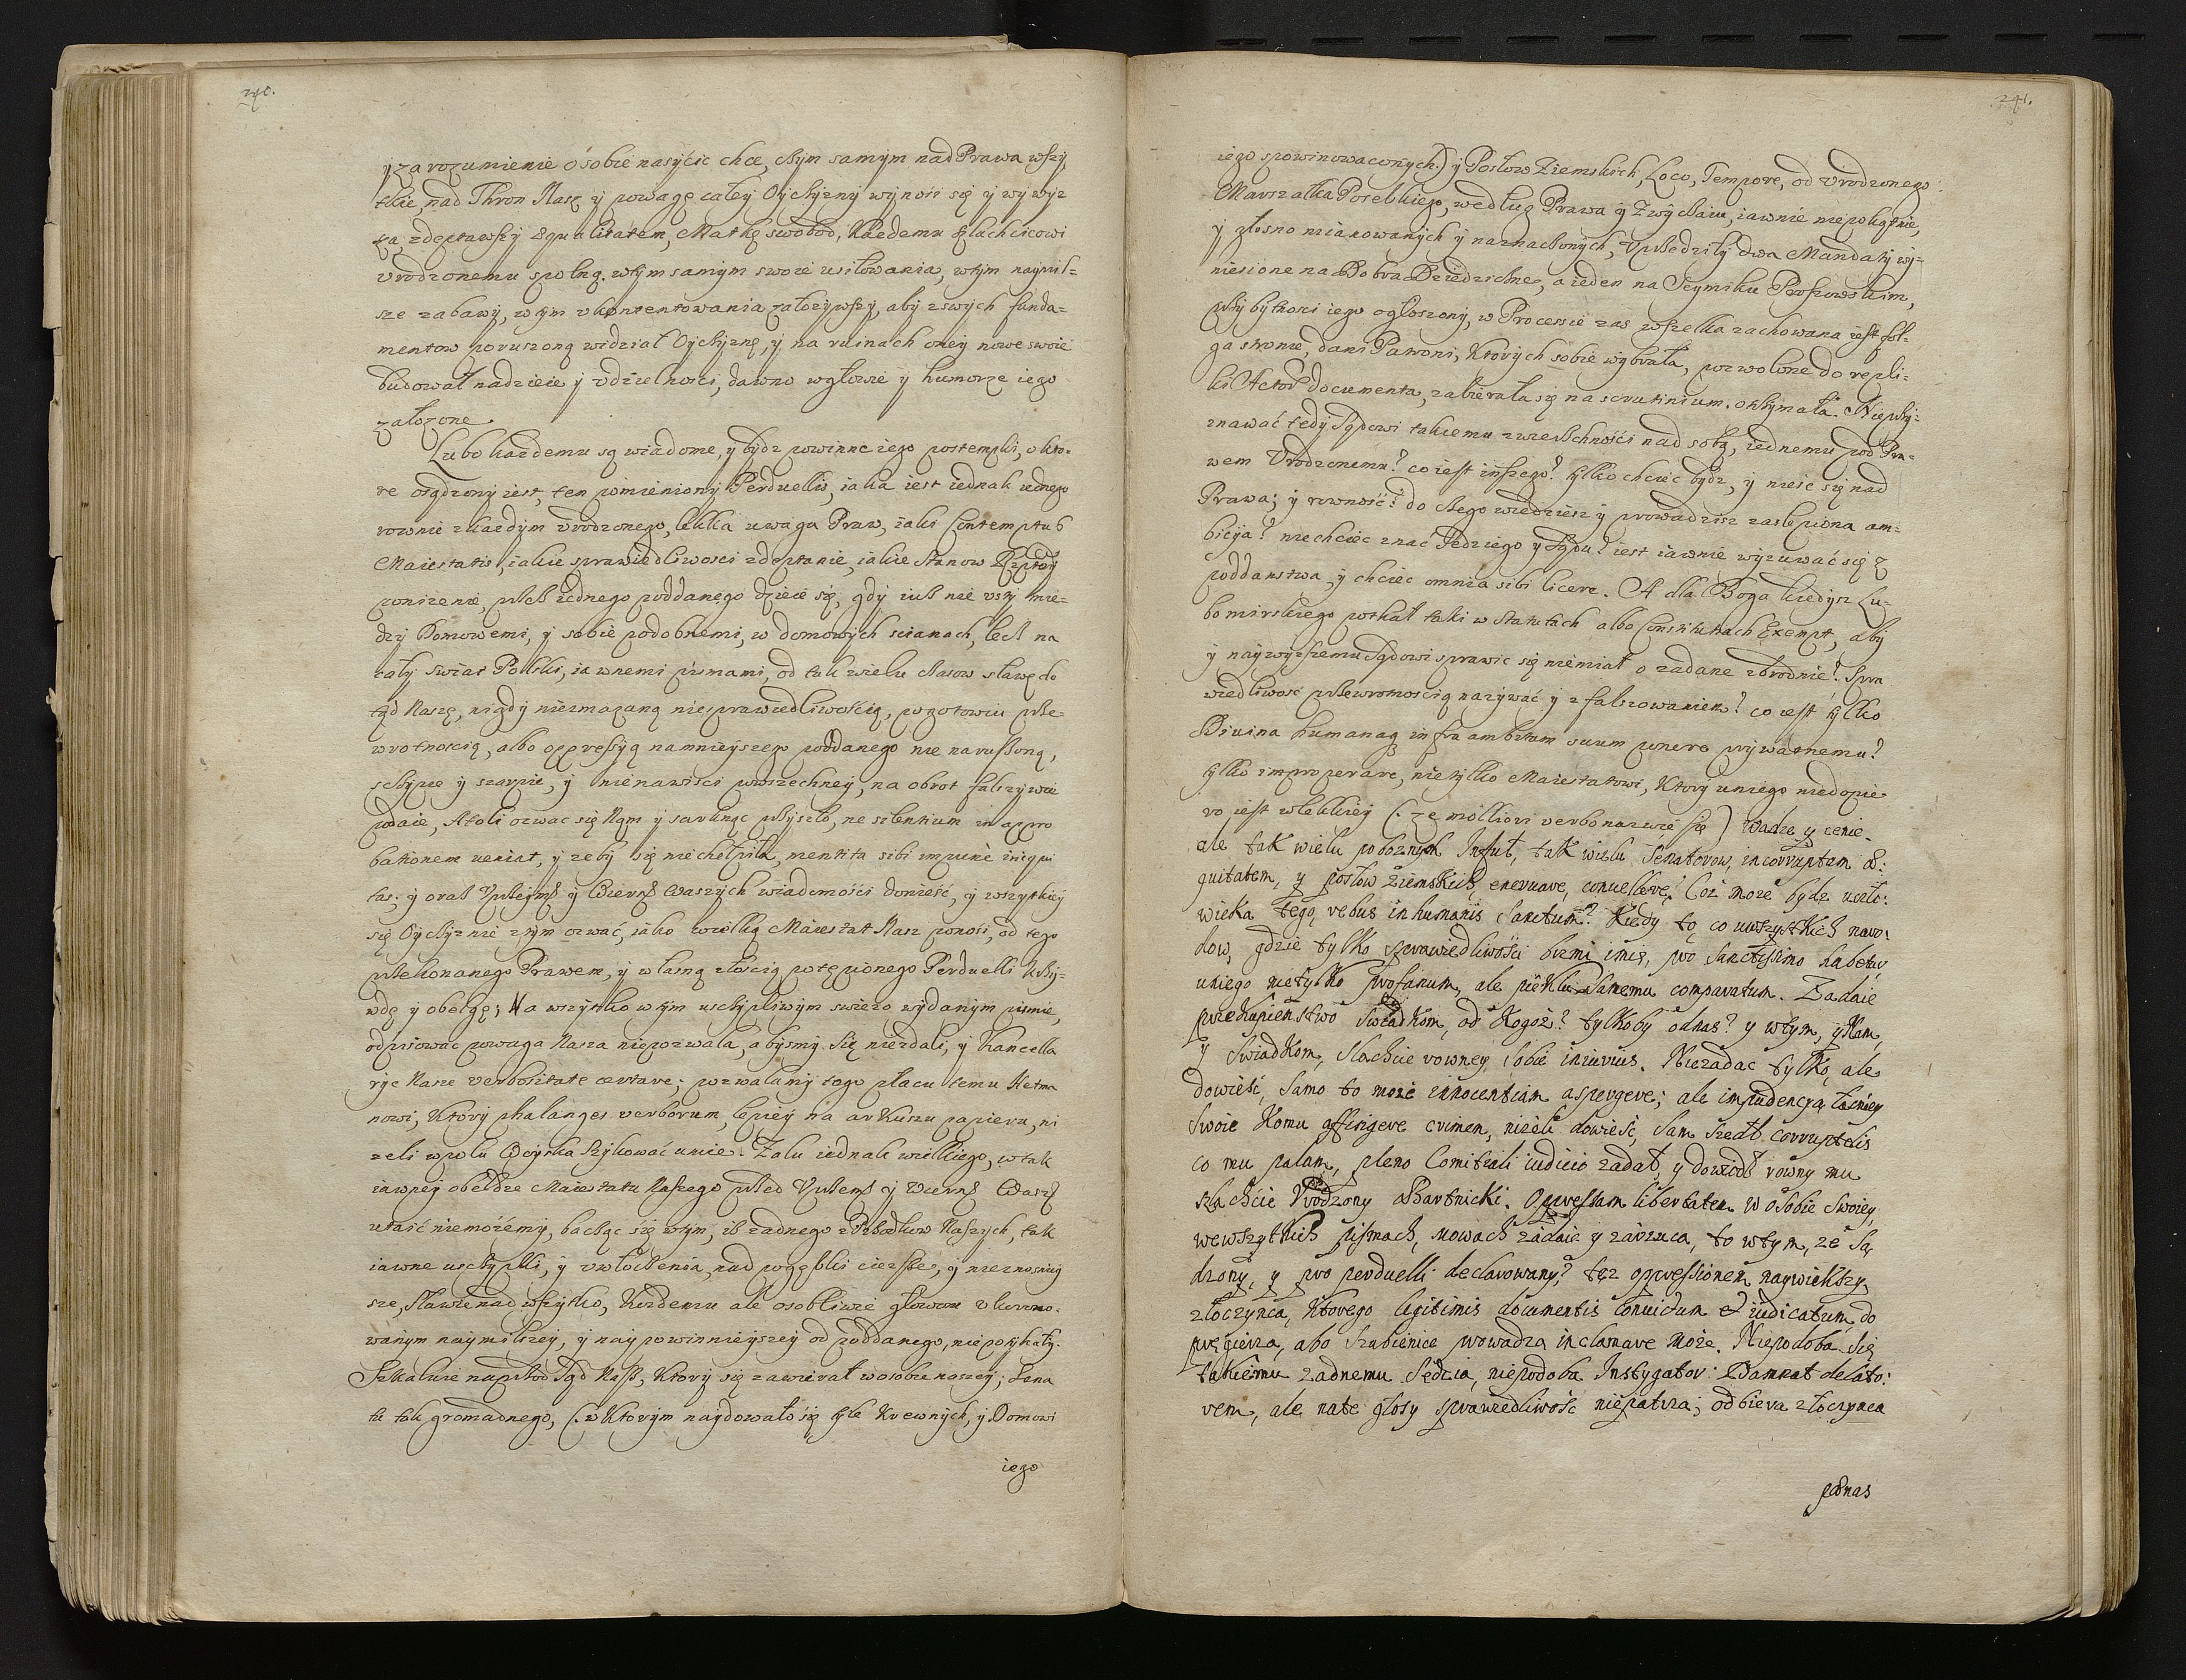 240.
y zarozumienie o sobie nasycić chce, czym samym nad Prawa wszy
tkie, nad Thron Nasz y powagę całey Oyczyzny wynosi się y wywyż
sza, zdeptawszy Equalitatem, Matkę swobod, Każdemu szlachcicowi
vrodzonemu spolną. wtym samym swoie usiłowania, wtym naymil=
sze zabawy, wtym vkontentowania założywszy, aby zswych funda=
mentow poruszoną widział Oyczyznę, y na ruinach oney nowe swoie
budował nadzieie y vdzielności, dawno wgłowie y humorze iego
założone.
Lubo każdemu są wiadome, y bydz powinne iego postempki, o kto=
re osądzony iest, ten pomieniony Perduellis, iaka iest iednak iednego
rownie zkażdym vrodzonego, lekka uwaga Praw, iaki Contemptus
Maiestatis, iakie sprawiedliwosci zdeptanie, iakie Stanow Rzptey
poniżenie, przez iednego poddanego dzieie się, gdy iuż nie vszy mię=
dzy Domowemi, y sobie podobnemi, w domowych scianach, lecz na
cały swiat Polski, iawnemi pismami, od tak wielu czasow sławę do
tąd Naszę, nigdy niezmazaną niesprawiedliwością, pogotowiu prze=
wrotnoscią, albo oppressyą namnieyszego poddanego nie naruszoną,
szczypie y szarpie, y nienawisci powszechney, na obrot fałszywie
podaie, Atoli ozwac się Nam y sarknąc przyszło, ne silentium in appro
bationem veniat, y zeby się nie chełpiła, mentita sibi impunè iniqui
tas; y oraz Vprzeym y Wiern Waszych wiadomości donieść, y wszystkiey
się Oyczyznie znym ozwać, iako wielką Maiestat Nasz ponosi, od tego
przekonanego Prawem, y własną złością potępionego Perduelli krzy=
wdę y obelgę; Na wszystko wtym uszczypliwym swieżo wydanym pismie,
odpisowac powaga Nasza niepozwala, abysmy się niezdali, y Kancella
ryę Nasze verbositate certare; pozwalamy tego placu temu Hetma
nowi, Ktory phalanges verborum, lepiey na arkuszu papieru, ni
zeli wpolu Woyska szykować umie. Zalu iednak wielkiego, wtak
iawney obeldze Maiestatu Naszego przed Vprzem y Wiern Wasz
utaić niemożemy, bacząc się wtym, iż żadnego z Przodkow Naszych, tak
iawne uszczypki, y vwłoczenia, nad pogębki cięższe, y nieznosniey
sze, Sławie nad wszytko, Każdemu ale osobliwie głowom vkorono=
wanym naymilszey, y naypowinnieyszey od poddanego, niepotykały.
Szkaluie naprzod Sąd Nasz, Ktory się zawierał w osobie naszey, Sena
tu tak gromadnego, (w Ktorym naydowało się tyle Krewnych, y Domowi
iego
241.
iego spowinowaconych) y Posłow Ziemskich, Loco, Tempore, od vrodzonego
Marszałka Poselskiego, według Prawa y Zwyczaiu, iawnie niepokątnie,
y głosno mianowanych y naznaczonych, Vprzedziły dwa Mandaty wy=
niesione na Dobra Dziedziczne, a ieden na Seymiku Proszowskim,
przy bytnosci iego ogłoszony, w Processie zas wszelka zachowana iest fol=
ga stronie, dani Patroni, Ktorych sobie wybrała, pozwolone do repli=
ki Actor documenta, zabierała się na scrutinium, otrzymała. Nieprzy=
znawać tedy Sądowi takiemu zwierzchności nad sobą, iednemu pod Pra=
wem Vrodzonemu? co iest inszego? tylko chcieć bydz, y nieść się nad
Prawa; y rowność? do czego wiedziesz y prowadzisz zaslepiona am=
bicya? niechcieć znać Sędziego y Sądu? iest iawnie wyzuwać się z
poddanstwa, y chcieć omnia sibi licere. A dla Boga kiedysz Lu=
bomirskiego potkał taki w Statutach albo Constitutiach Exempt, aby
y naywyższemu Sądowi sprawic się niemiał o zadane zbrodnie? Spra
wiedliwosć przewrotnoscią nazywać y zfałszowaniem? co iest tylko
Divina humanaq infra ambitum suum ponere prywatnemu?
tylko improperare, nietylko Maiestatowi, Ktory uniego niedopie
ro iest wlekkiey (że molliori verbo nazwię się) wadze y cenie.
ale tak wielu poboznych Inful, tak wielu Senatorow, incorruptam æ:
quitatem, y posłow ziemskich, enervare, convellere? Coż może bydz uczło:
wieka tego, rebus inhumanis Sanctum? Kiedy to, co uwszystkich naro:
dow, gdzie tylko sprawiedliwości brzmi imię, pro Sanctissimo habetur
uniego nietylko profanum, ale piekłu samemu comparatum. Zadaie
przekupienstwo Swiadkom, od Kogoż? tylkoby odnas? y wtym, y Nam,
y Swiadkom, Slachcie rowney sobie iniurius. Niezadac tylko, ale
dowieść, samo to może innocentiam aspergere; ale impudencyą łacniey
swoie Komu affingere crimen, niżeli dowieść, Sam szedł corruptelis
co mu palam, pleno Comitiali iudicio zadał, y dowiodł rowny mu
szlachcic Vrodzony Bartnicki. Oppressam libertatem w osobie swoiey,
wewszytkich pismach, mowach zadaie y zarzuca, to wtym, że Są
dzony, y pro perduelli declarowany? tęż oppressionem naywiększy
złoczynca, Ktorego legitimis documentis convictum et iudicatum, do
pręgierza, abo szubienice prowadzą inclamare może. Niepodoba się
takiemu żadnemu Sędzia, niepodoba Instygator: Damnat delato:
rem, ale nate głosy sprawiedliwość niepatrza; odbiera złoczynca